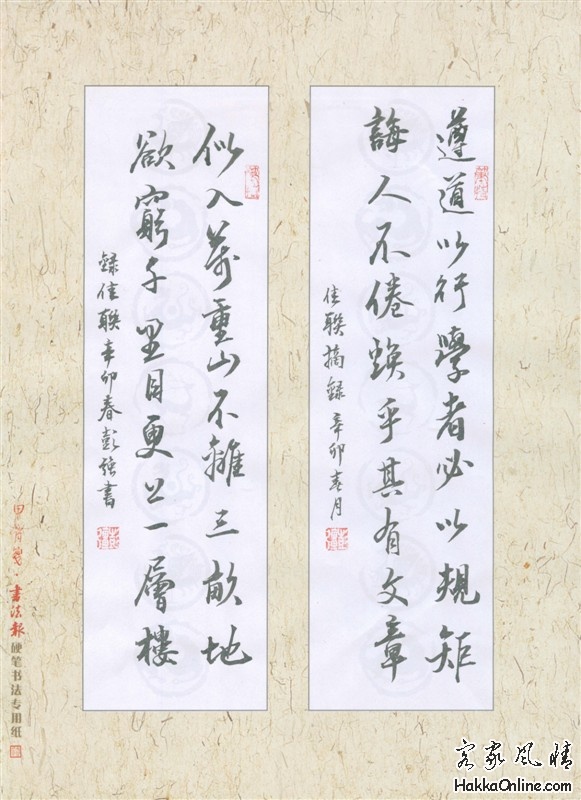 遵道以行學者必以規矩
誨人不倦焕乎其有文章
佳联摘録 辛卯春月
似入萬重山不離三畝地
欲窮千里目更上一層樓
録佳联 辛卯春彭强書
書法報
硬笔书法专用纸
客家风情
HakkaOnline.com